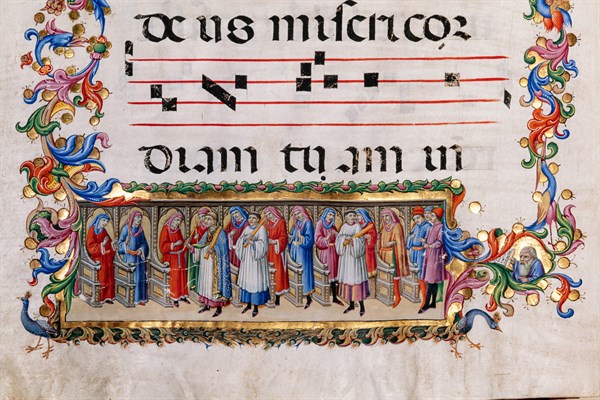 de us misericor
diam tuam in